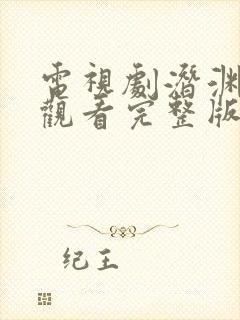 電視劇潛淵
觀看完整版
纪王